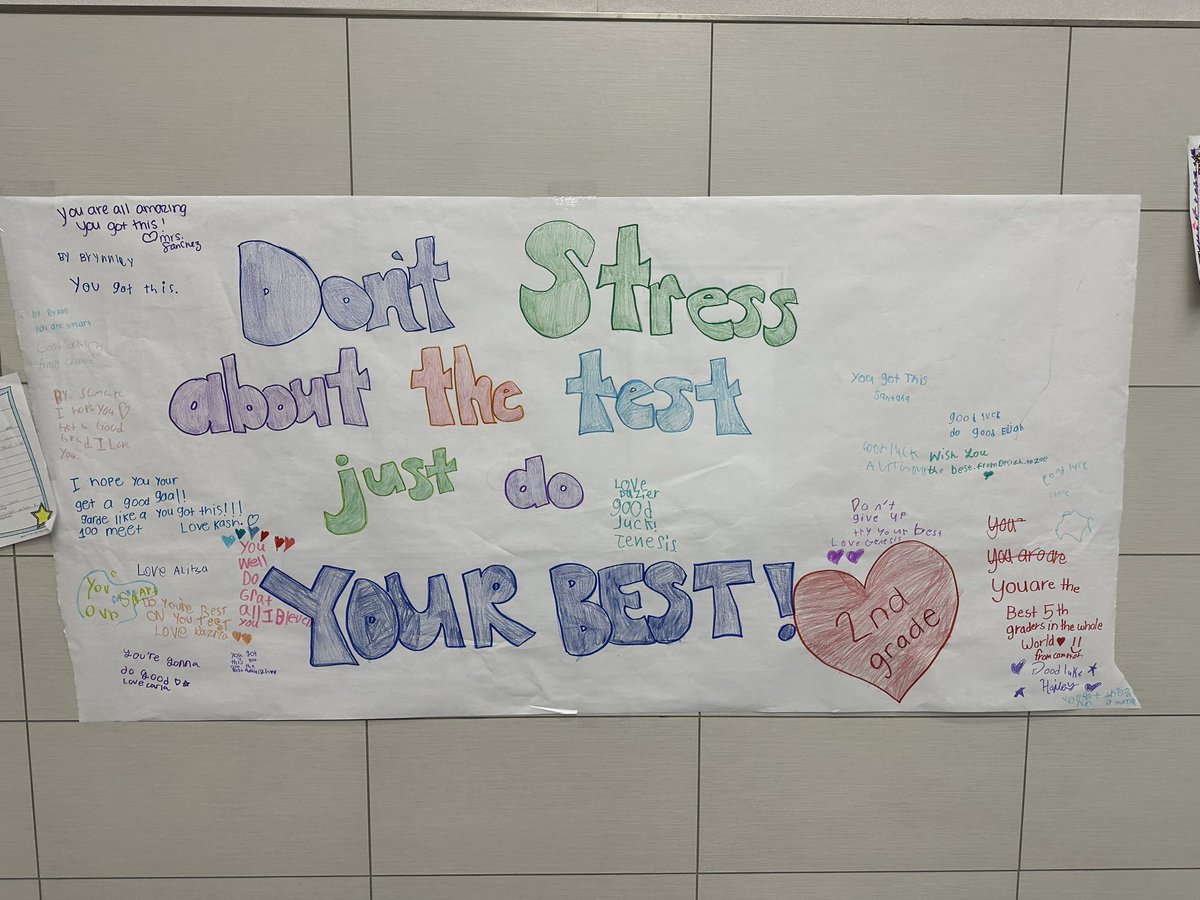 Don't Stress
about the test
just do
YOUR BEST!
2nd
grade
You are all amazing
you got this!
♡ mrs.
Sanchez
BY BrYnnley
You got this.
by Ryan
You are smart
Good luck!
BY.
I hope You ♡
Get a Good
I Love
You.
I hope you your
get a good goal!
garde like a you got this!!!
100 meet Love Kash. ♡
Love Alitza
You
Well
Do
Grat
all I
You
You
SMART
Do You're Best
ON You teSt
Love Kazria
You're gonna
do good ♡ ★
Love carla
You got
this you
are the
Love
Dazier
good
luck!
Jenesis
You got This
Santana
good luck
do good Elijah
Good luck Wish You
the best. from
good luck
Don't
give up
try your best
Love Genesis
You
You are are
You are the
Best 5th
graders in the whole
World ♥ !!
from
Dood luke ★
Hailey